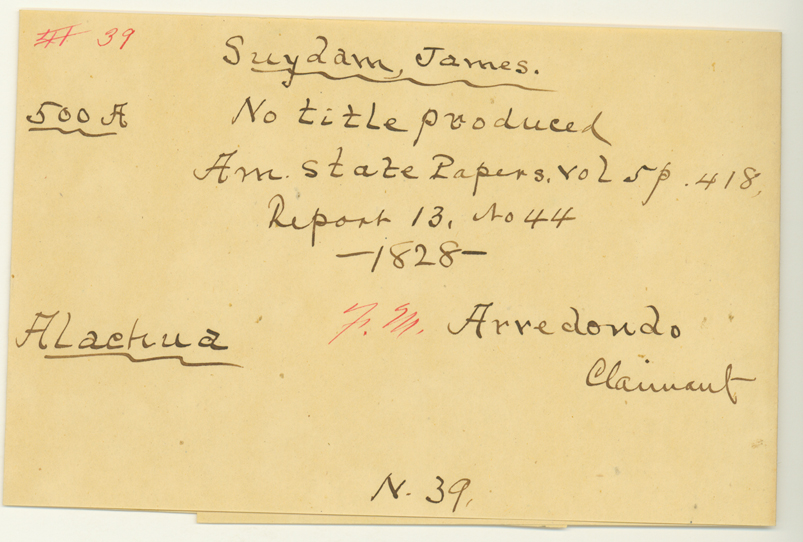 # 39
Suydam, James.
500 A
No title produced
Am. State Papers. vol 5 p. 418,
Report 13, No 44
—1828—
Alachua
F. M. Arredondo
Claimant
N. 39,